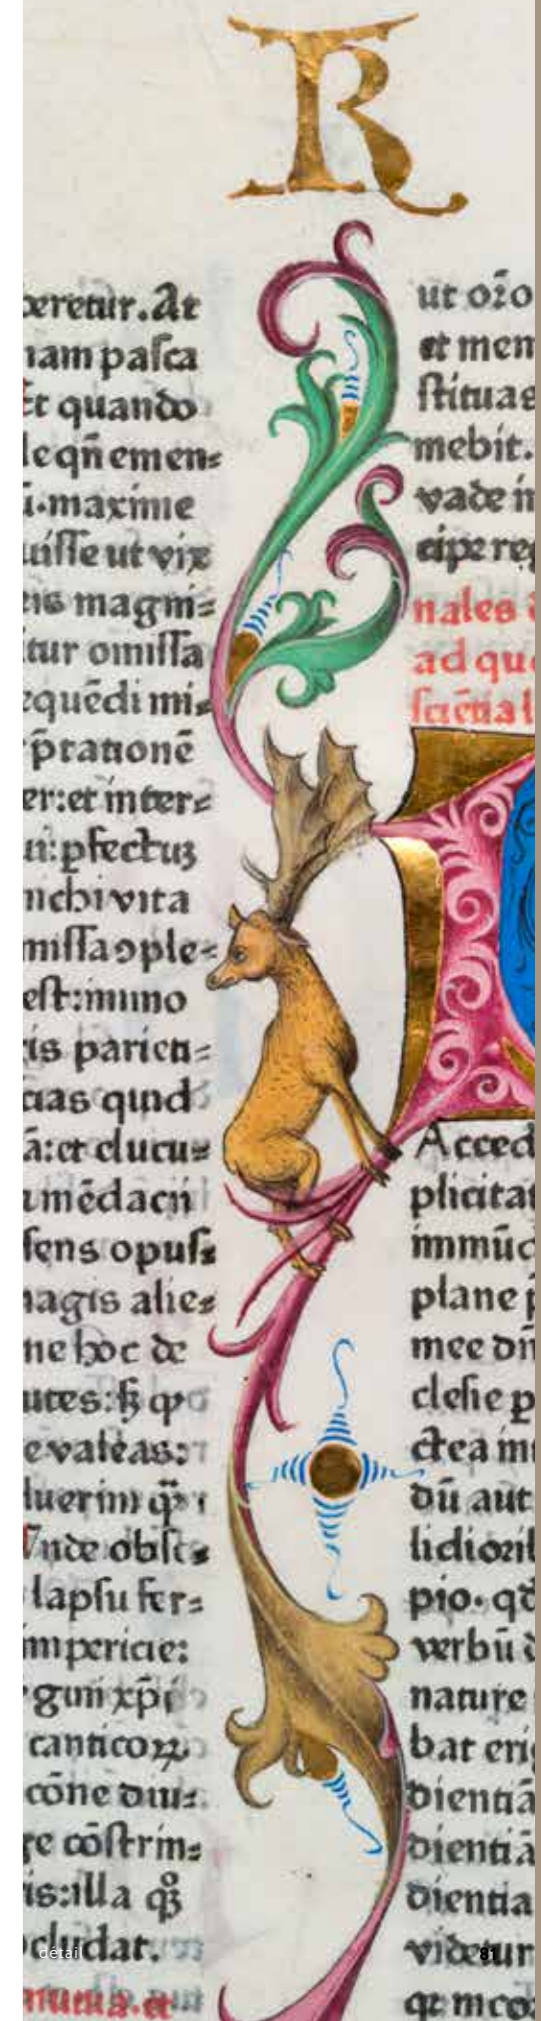 R
peretur. At
nam pasca
Et quando
le qn̄ emen⸗
ū. maxime
uisse ut vix
eis magni⸗
itur omissa
equēdi mi⸗
p̄tationē
er: et inter⸗
ui: ꝑfectuꝫ
nchi vita
missa ↄple⸗
est: immo
is parien⸗
cias quid
ā: et clucu⸗
mēdacii
sens opus⸗
magis alie⸗
ne hoc de
utes: sꝫ ꝙ
e valeas:
luerim
Vnde obse⸗
lapsu fer⸗
impericie:
xp̄i
canticoꝝ
cōne diui⸗
ge cōstrim⸗
is: illa
cludat.
ut oꝛō
et mem
stituas
mebit.
vade in
cipe reg
nales
ad que
sciētia l
Acced
plicitat
immūd
plane
mee dn̄
clesie p
ctea in
dū aut
lidioꝛib
pio. qd
verbū
nature
bat eri
dientiā
dientiā
dientia
videtur
détail
81